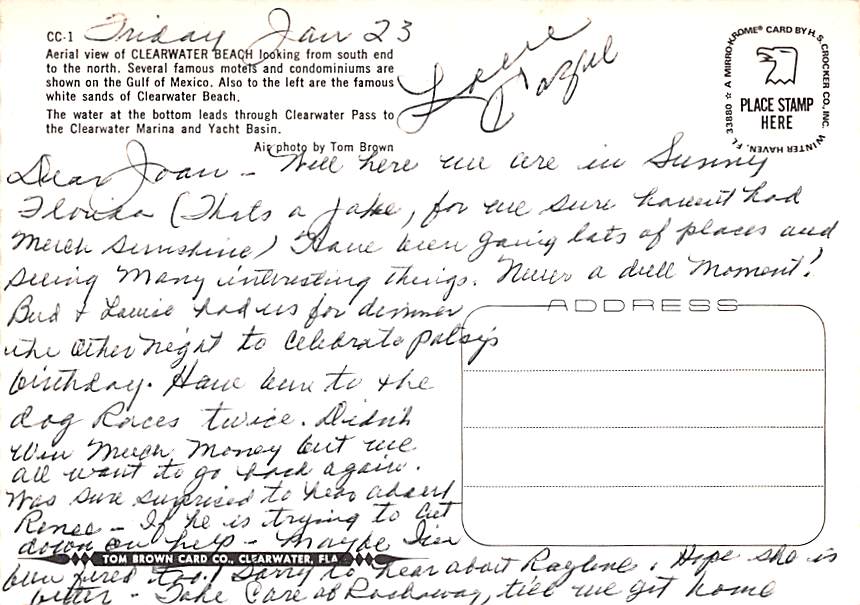 CC-1 Friday Jan 23
Aerial view of CLEARWATER BEACH looking from south end
to the north. Several famous motels and condominiums are
shown on the Gulf of Mexico. Also to the left are the famous
white sands of Clearwater Beach.
The water at the bottom leads through Clearwater Pass to
the Clearwater Marina and Yacht Basin.
Air photo by Tom Brown
Love
A MIRRO-KROME® CARD BY H. S. CROCKER CO., INC. WINTER HAVEN, FL 33880 ☆
PLACE STAMP
HERE
Dear Joan - Well here we are in Sunny
Florida (Thats a joke, for we sure havent had
Much sunshine) Have been going lots of places and
seeing Many interesting things. Never a dull Moment!
Bud + Louise had us for dinner
the other night to celebrate Patsy's
birthday. Have been to the
dog Races twice. Didnt
win Much Money but we
all want to go back again.
Was sure surprised to hear about
Renee - If he is trying to cut
down on help - Maybe I've
been fired too! Sorry to hear about Rayline. Hope she is
better - Take Care at Rockaway, till we get home
ADDRESS
TOM BROWN CARD CO., CLEARWATER, FLA.